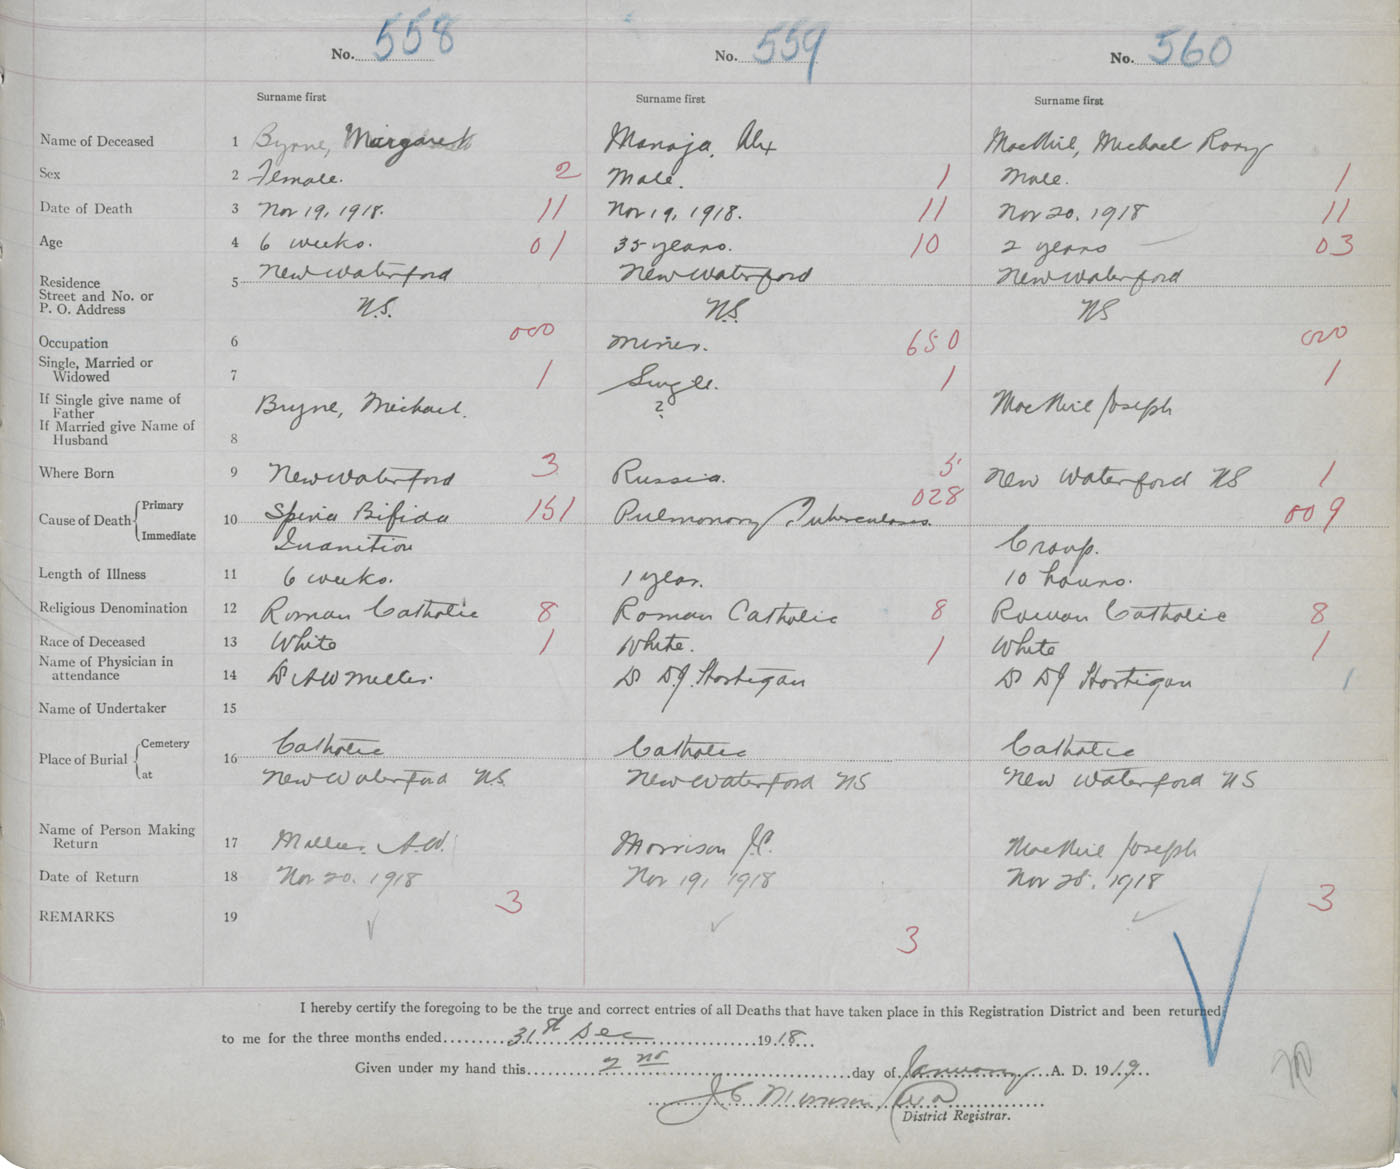 No. 558 No. 559 No. 560
Surname first Surname first Surname first
Name of Deceased 1 Byrne, Margaret Manaja, Alex MacNeil, Michael Rory
Sex 2 Female. 2 Male. 1 Male. 1
Date of Death 3 Nov 19, 1918. 11 Nov 19, 1918. 11 Nov 20, 1918 11
Age 4 6 weeks. 01 35 years. 10 2 years 03
Residence Street and No. or P. O. Address 5 New Waterford New Waterford New Waterford
N.S. N.S. NS
Occupation 6 000 Miner. 650 000
Single, Married or Widowed 7 1 Single. 1 1
If Single give name of Father Bryne, Michael. ? MacNeil Joseph
If Married give Name of Husband 8
Where Born 9 New Waterford 3 Russia. 5 New Waterford NS 1
Cause of Death Primary 10 Spina Bifida 151 Pulmonary Tuberculosis. 028 009
Immediate Inanition Croup.
Length of Illness 11 6 weeks. 1 year. 10 hours.
Religious Denomination 12 Roman Catholic 8 Roman Catholic 8 Roman Catholic 8
Race of Deceased 13 White 1 White. 1 White 1
Name of Physician in attendance 14 Dr A W Miller. Dr D.J. Hartigan Dr DJ Hartigan
Name of Undertaker 15
Place of Burial Cemetery 16 Catholic Catholic Catholic
at New Waterford N.S. New Waterford NS New Waterford NS
Name of Person Making Return 17 Miller. A.W. Morrison J.C. MacNeil Joseph
Date of Return 18 Nov 20. 1918 Nov 19, 1918 Nov 28, 1918
REMARKS 19 3 3 3
I hereby certify the foregoing to be the true and correct entries of all Deaths that have taken place in this Registration District and been returned
to me for the three months ended 31st Dec 1918
Given under my hand this 2nd day of January A. D. 1919
J C Morrison
District Registrar.